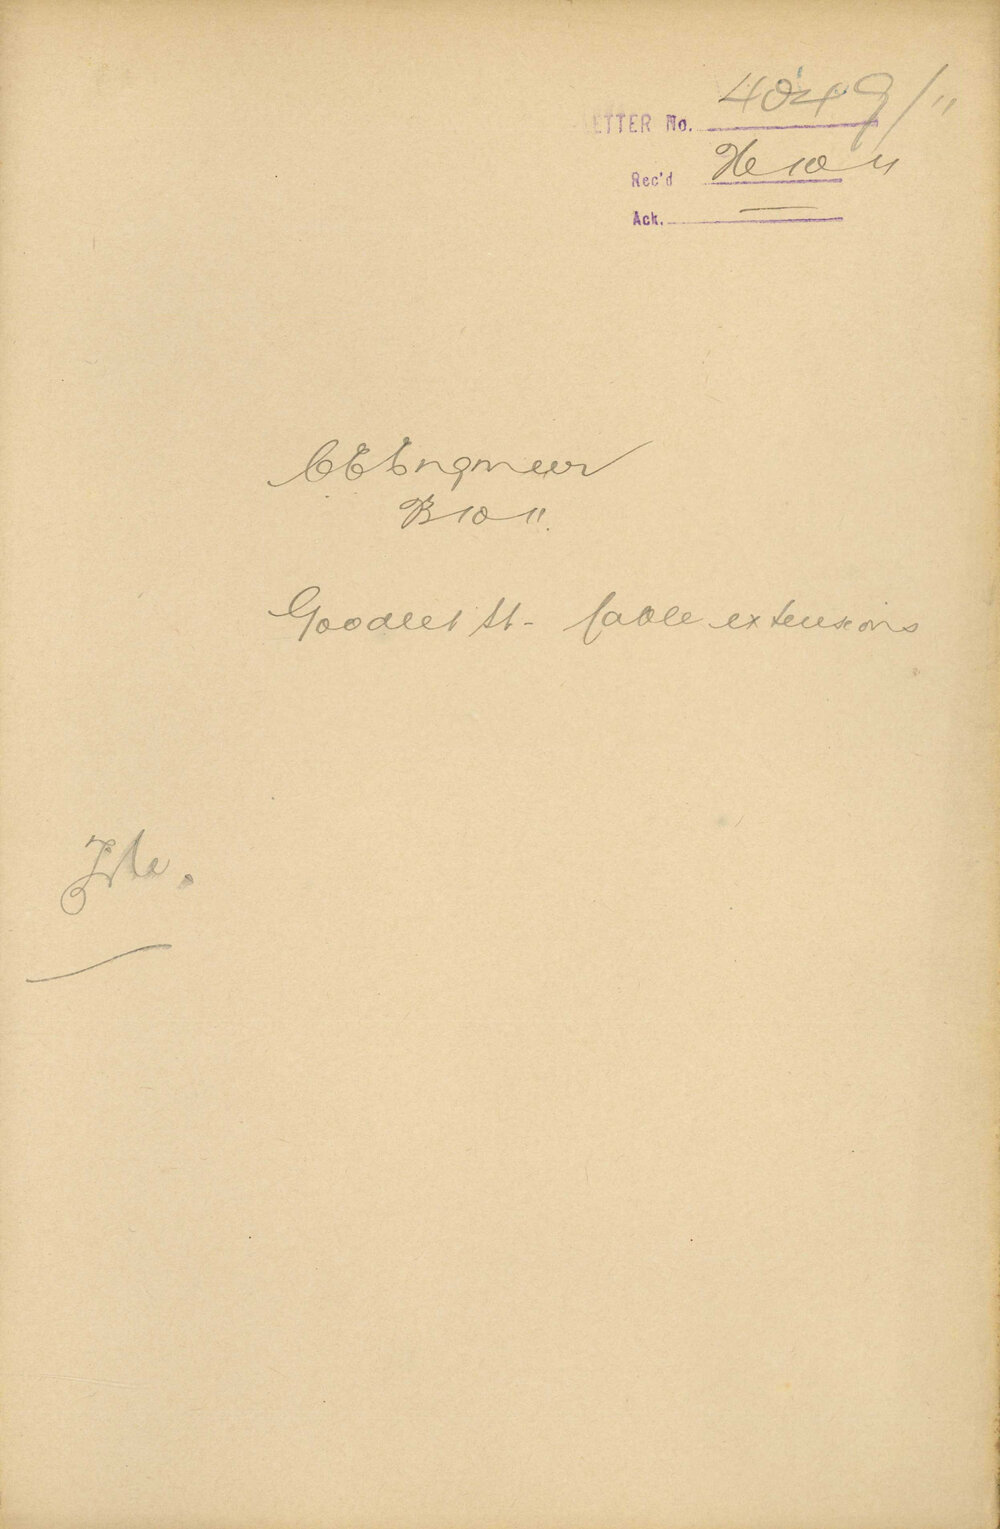 LETTER No. 4049/11
Rec'd 10 11
Ack. —
C E Engineer
10 11.
Goodlet St - Cable extensions
File.